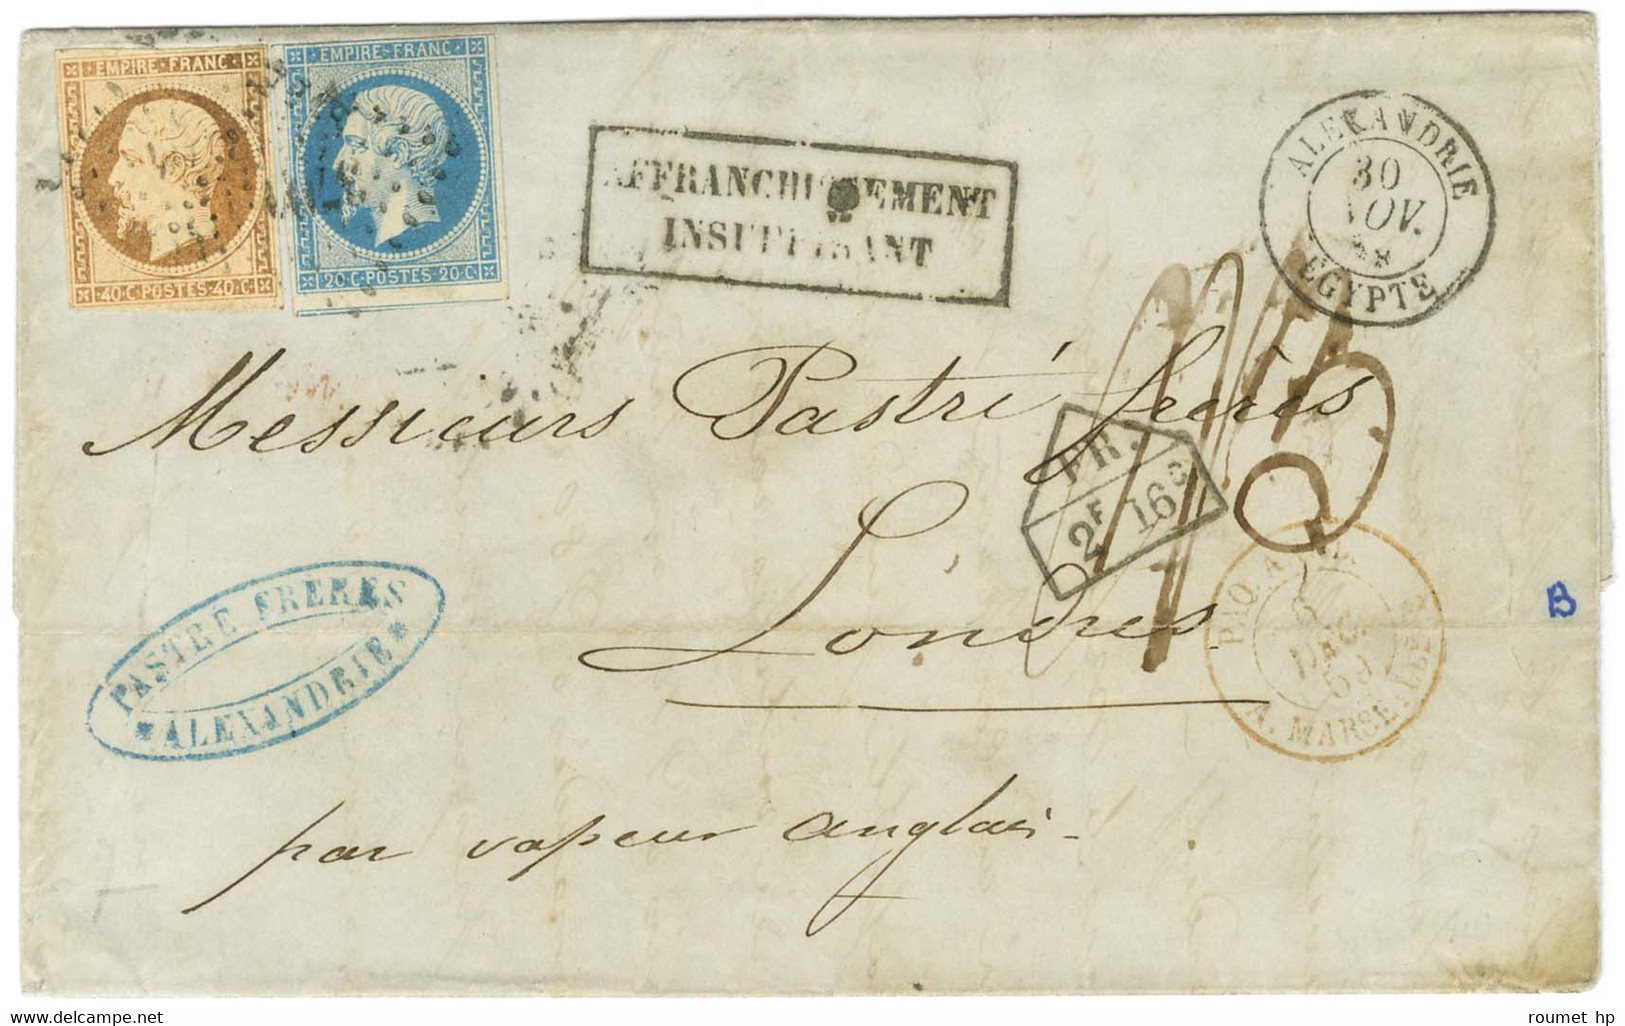 EMPIRE·FRANC·
·40·C·POSTES·40·C·
EMPIRE·FRANC·
20·C·POSTES·20·C·
AFFRANCHISSEMENT
INSUFFISANT
ALEXANDRIE
30
NOV.
EGYPTE
Messieurs Pastré frères
FR.
2F 16c
Londres
PASTRE FRERES
*ALEXANDRIE*
PAQ. ANG.
6
DEC.
59
A. MARSEILLES
B
par vapeur anglais
roumet hp